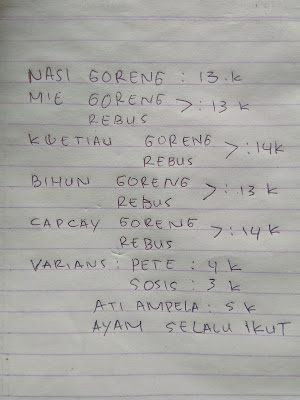 NASI GORENG : 13.K
MIE GORENG >: 13 K
REBUS
KWETIAU GORENG >: 14K
REBUS
BIHUN GORENG >: 13 K
REBUS
CAPCAY GORENG >: 14 K
REBUS
VARIANS : PETE : 4 K
SOSIS : 3 K
ATI AMPELA : 5 K
AYAM SELALU IKUT